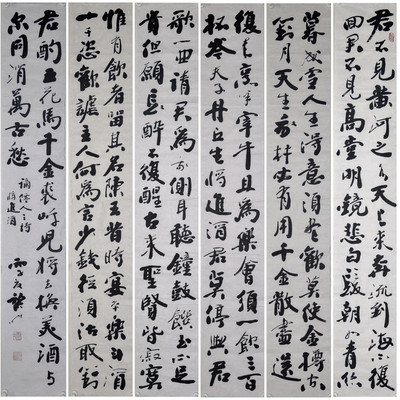 君不見黃河之水天上來奔流到海不復
回君不見高堂明鏡悲白髮朝如青絲
暮成雪人生得意須盡歡莫使金樽空
對月天生我材必有用千金散盡還
復來烹羊宰牛且為樂會須一飲三百
杯岑夫子丹丘生將進酒君莫停與君
歌一曲請君為我側耳聽鐘鼓饌玉不足
貴但願長醉不復醒古來聖賢皆寂寞
惟有飲者留其名陳王昔時宴平樂斗酒
十千恣歡謔主人何為言少錢徑須沽取對
君酌五花馬千金裘呼兒將出換美酒與
爾同消萬古愁
將進酒